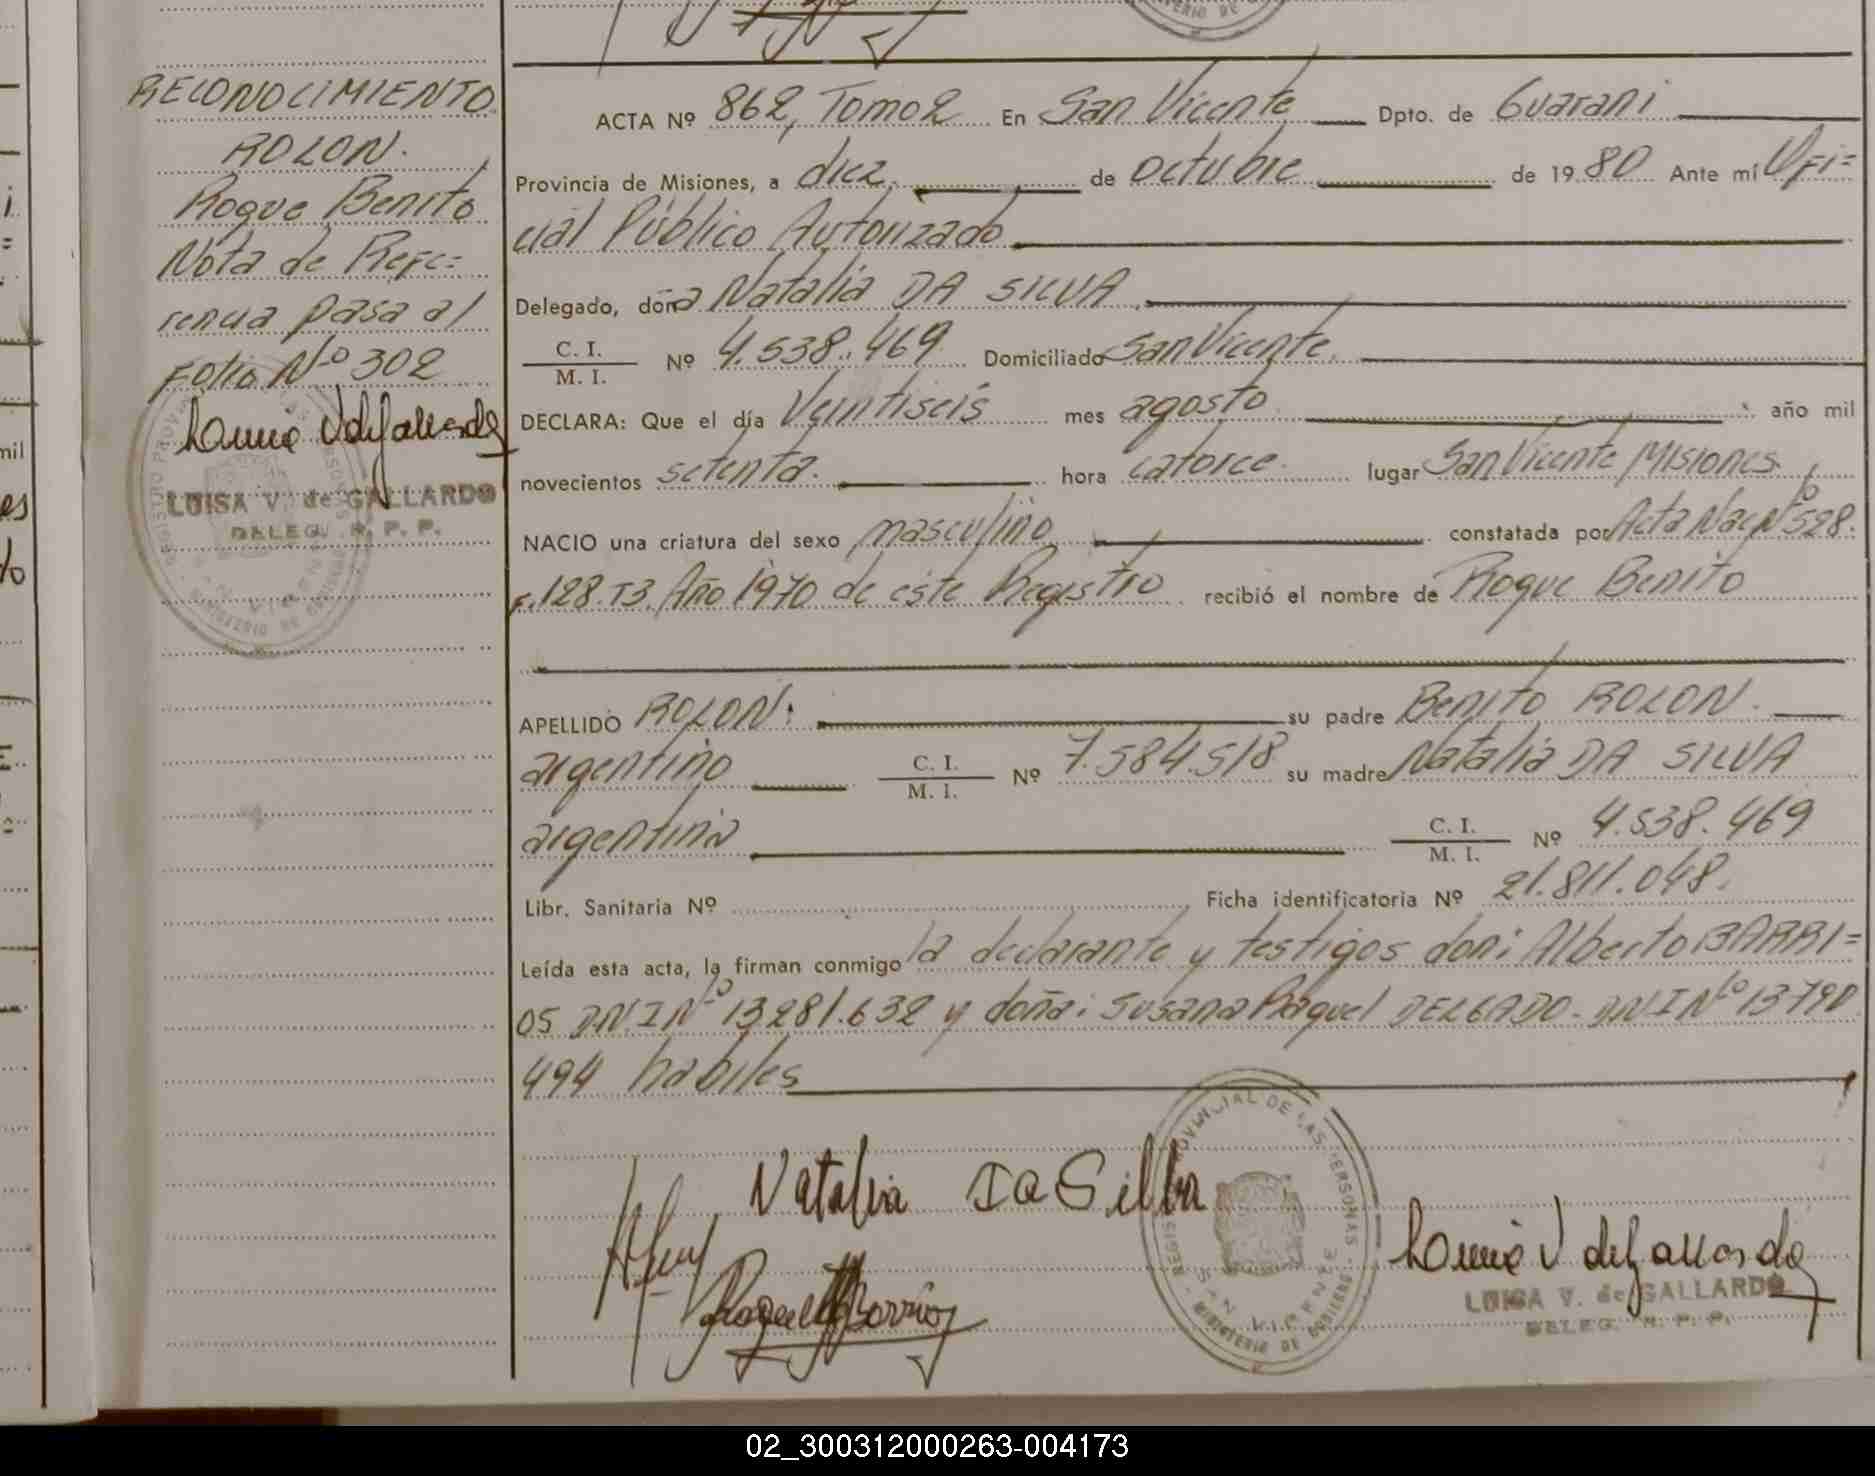 RECONOCIMIENTO.
ROLON.
Roque Benito
Nota de Refe=
rencia pasa al
Folio Nº 302
LUISA V. de GALLARDO
DELEG. R. P. P.
ACTA Nº 862, Tomo 2 En San Vicente Dpto. de Guarani
Provincia de Misiones, a diez, de octubre de 1980 Ante mí Ofi=
cial Público Autorizado
Delegado, doña Natalia DA SILVA.
C. I. / M. I. Nº 4.538.469 Domiciliado San Vicente.
DECLARA: Que el día Veintiseis mes agosto año mil
novecientos setenta. hora catorce. lugar San Vicente Misiones
NACIO una criatura del sexo masculino constatada por Acta Nac Nº 528.
F. 128. T3. Año 1970 de este Registro recibió el nombre de Roque Benito
APELLIDO ROLON: su padre Benito ROLON.
argentino C. I. / M. I. Nº 7.584.518 su madre Natalia DA SILVA
argentina C. I. / M. I. Nº 4.538.469
Libr. Sanitaria Nº Ficha identificatoria Nº 21.811.048.
Leída esta acta, la firman conmigo la declarante y testigos don: Alberto BARRI=
OS DNI Nº 13281.632 y doña: Susana Raquel DELGADO. DNI Nº 13790
494 habiles
Natalia Da Silba
REGISTRO PROVINCIAL DE LAS PERSONAS
SAN VICENTE
MINISTERIO DE GOBIERNO
LUISA V. de GALLARDO
DELEG. R. P. P.
02_300312000263-004173